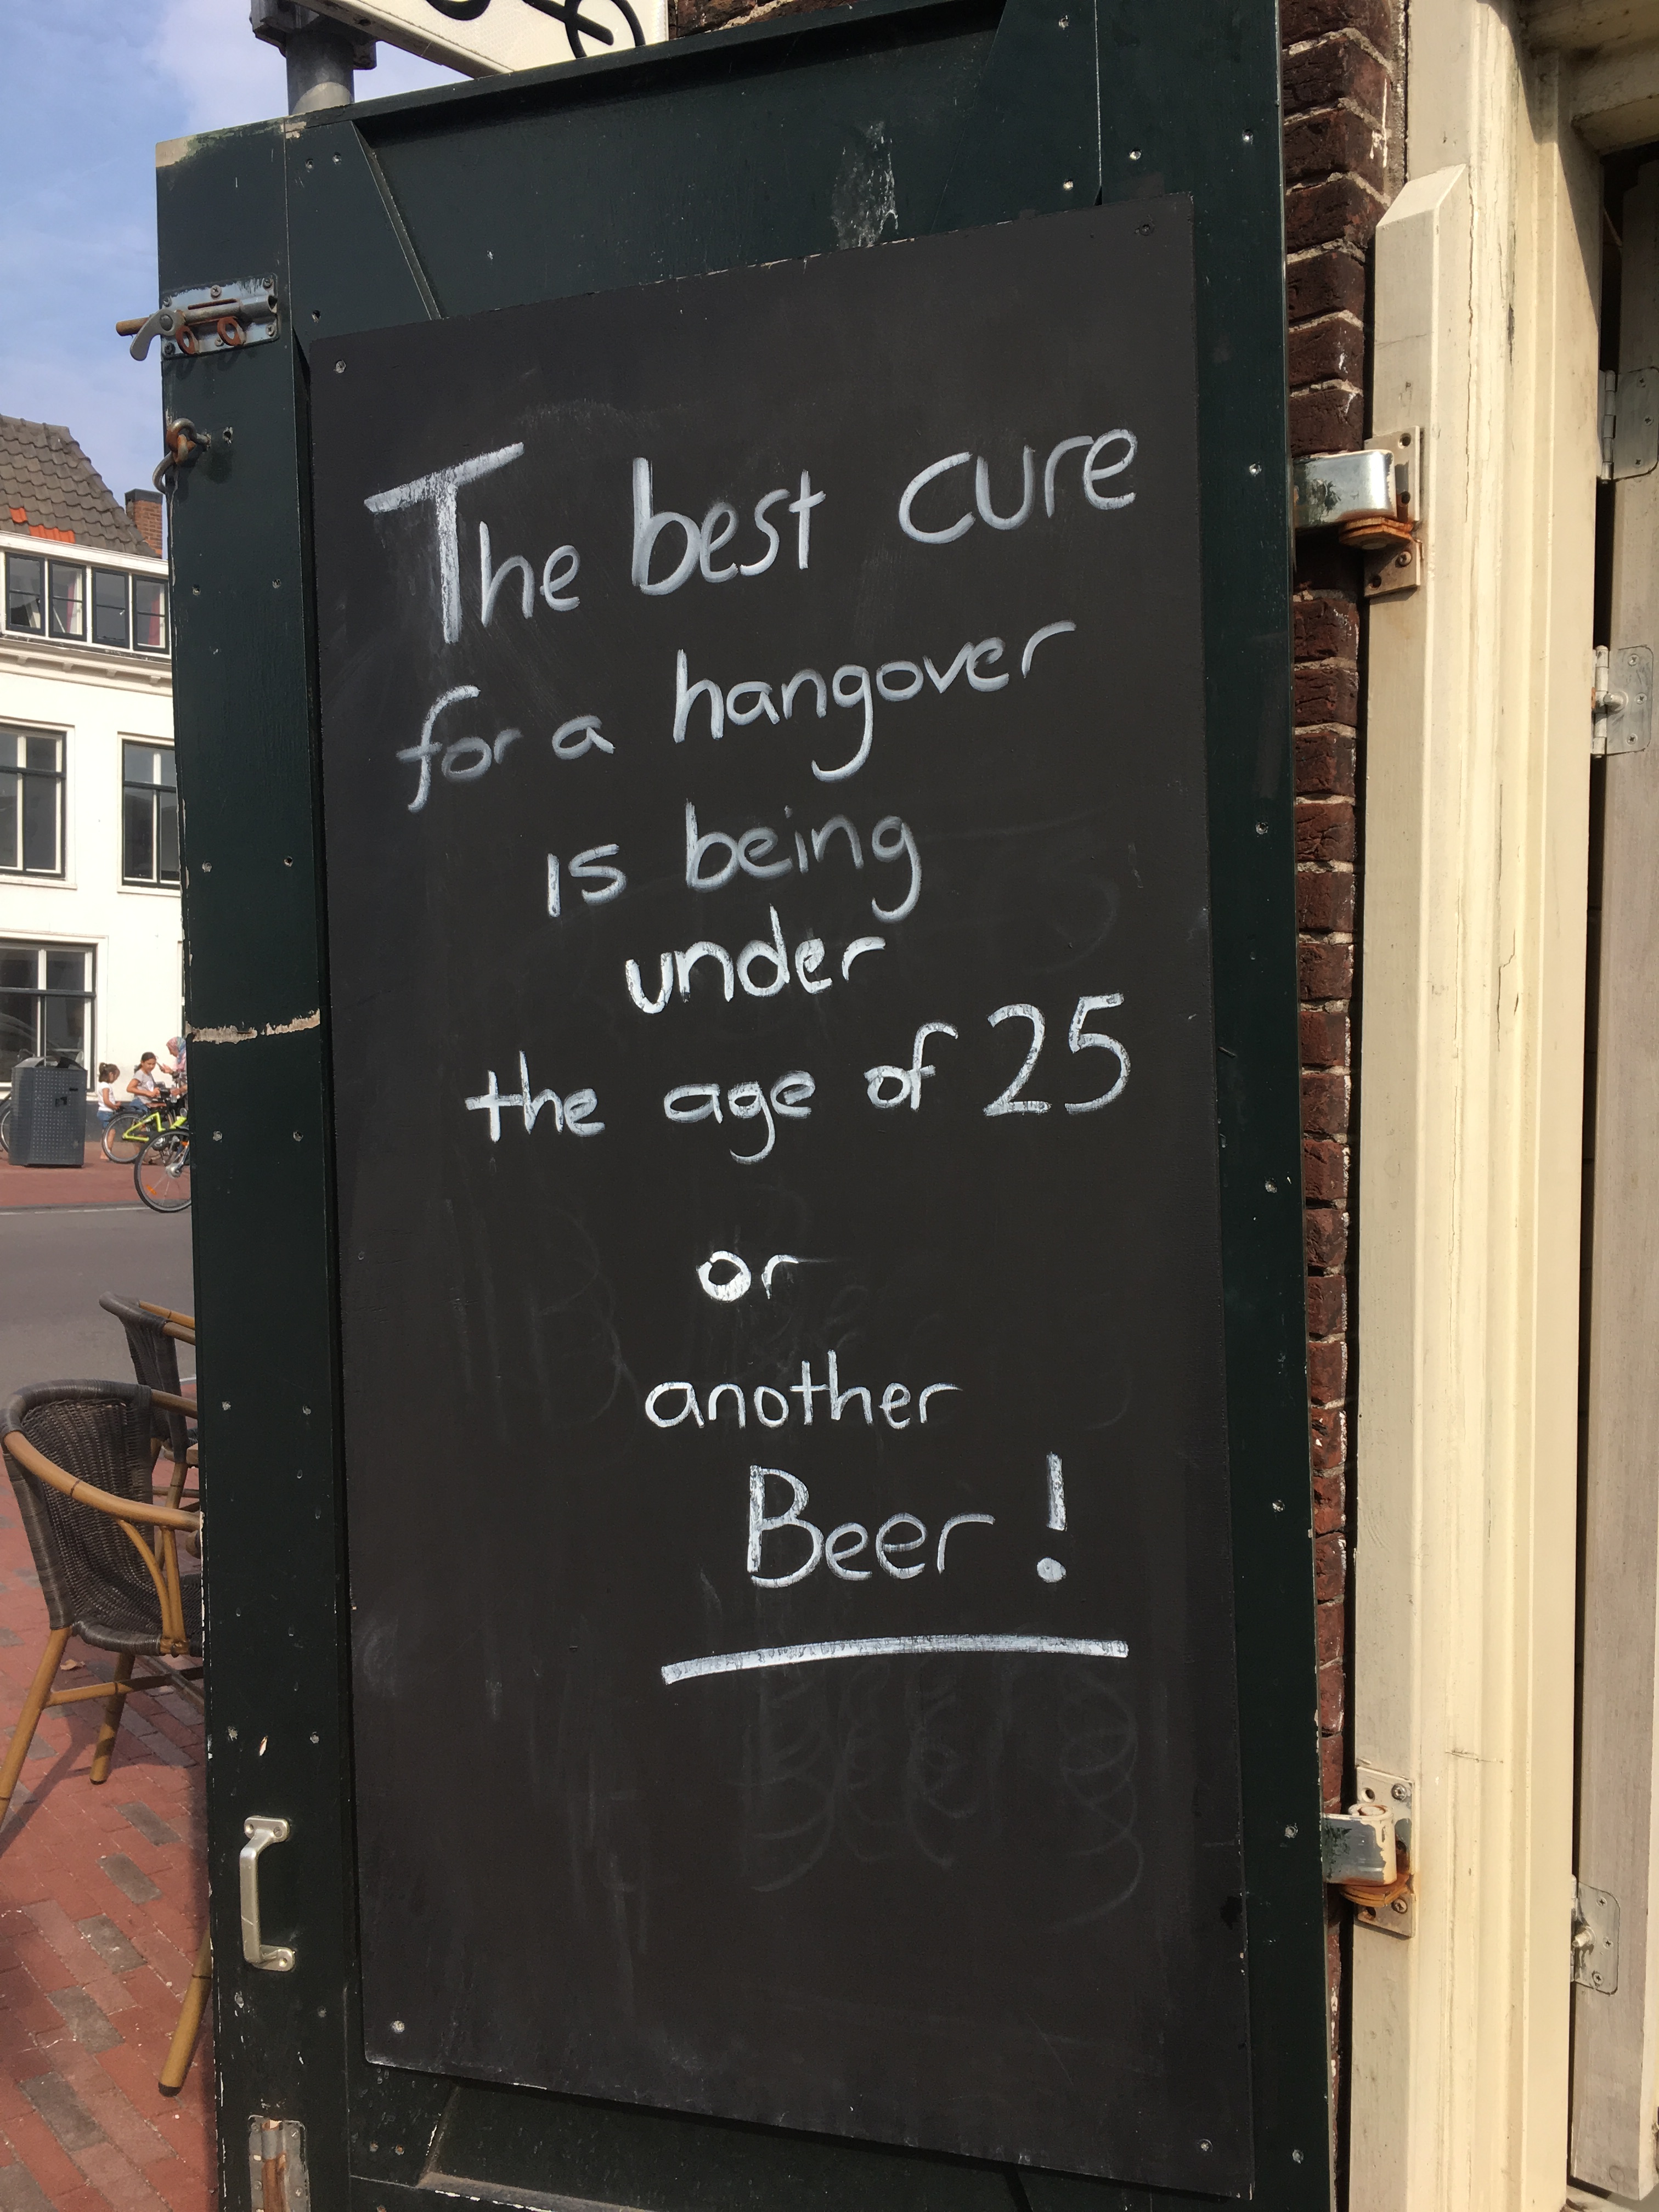 The best cure
for a hangover
is being
under
the age of 25
or
another
Beer !